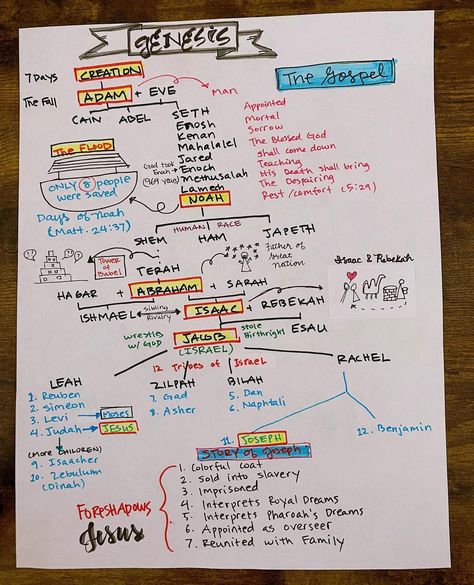 GENESIS
7 Days CREATION
The Fall ADAM + EVE
Man
The Gospel
CAIN ABEL SETH
Enosh
Kenan
Mahalalel
Jared
Enoch
Methusalah
Lamech
NOAH
Appointed
Mortal
Sorrow
The Blessed God
shall come down
Teaching
His Death shall bring
The Despairing
Rest/comfort (5:29)
The FLOOD
God took
Enoch
(969 years)
ONLY 8 people
were saved
Days of Noah
(Matt. 24:37)
HUMAN RACE
SHEM HAM JAPETH
Tower of
Babel
TERAH
Father of
Great
Nation
HAGAR + ABRAHAM + SARAH
Isaac & Rebekah
ISHMAEL
Sibling
Rivalry
ISAAC + REBEKAH
wrestles
w/ GOD
JACOB
(ISRAEL)
stole
Birthright
ESAU
12 Tribes of Israel
LEAH
1. Reuben
2. Simeon
3. Levi Moses
4. Judah JESUS
(MORE CHILDREN)
9. Isaacher
10. Zebulumn
(Dinah)
ZILPAH
7. Gad
8. Asher
BILAH
5. Dan
6. Naphtali
RACHEL
11. JOSEPH
12. Benjamin
STORY of Joseph
1. Colorful coat
2. Sold into slavery
3. Imprisoned
4. Interprets Royal Dreams
5. Interprets Pharoah's Dreams
6. Appointed as overseer
7. Reunited with Family
FORESHADOWS
Jesus